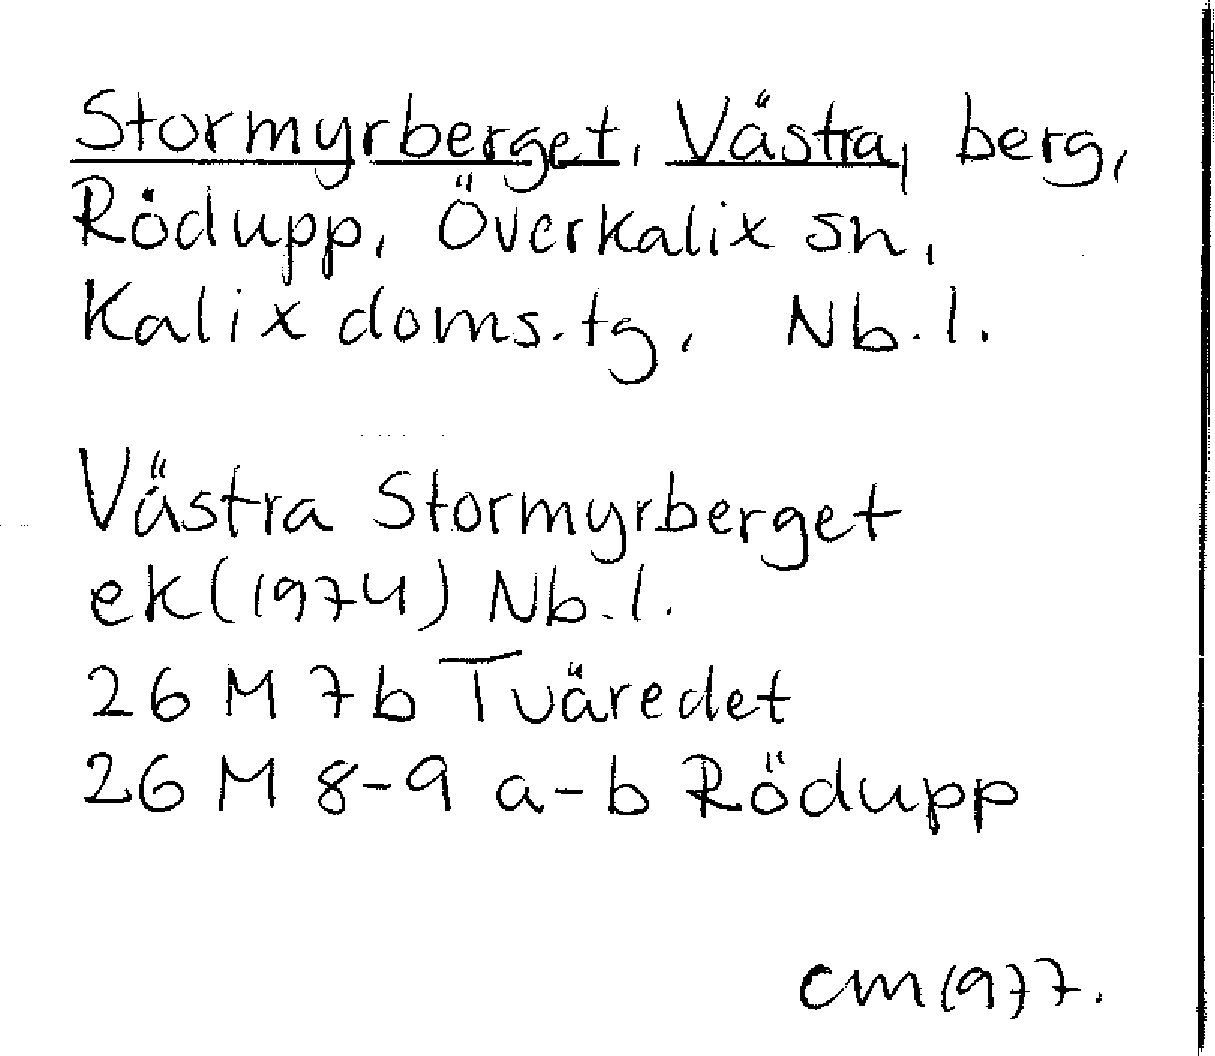 Stormyrberget, Västra, berg,
Rödupp, Överkalix sn,
Kalix doms.tg, Nb.l.
Västra Stormyrberget
ek(1974) Nb.l.
26 M 7b Tväredet
26 M 8-9 a-b Rödupp
CM 1977.